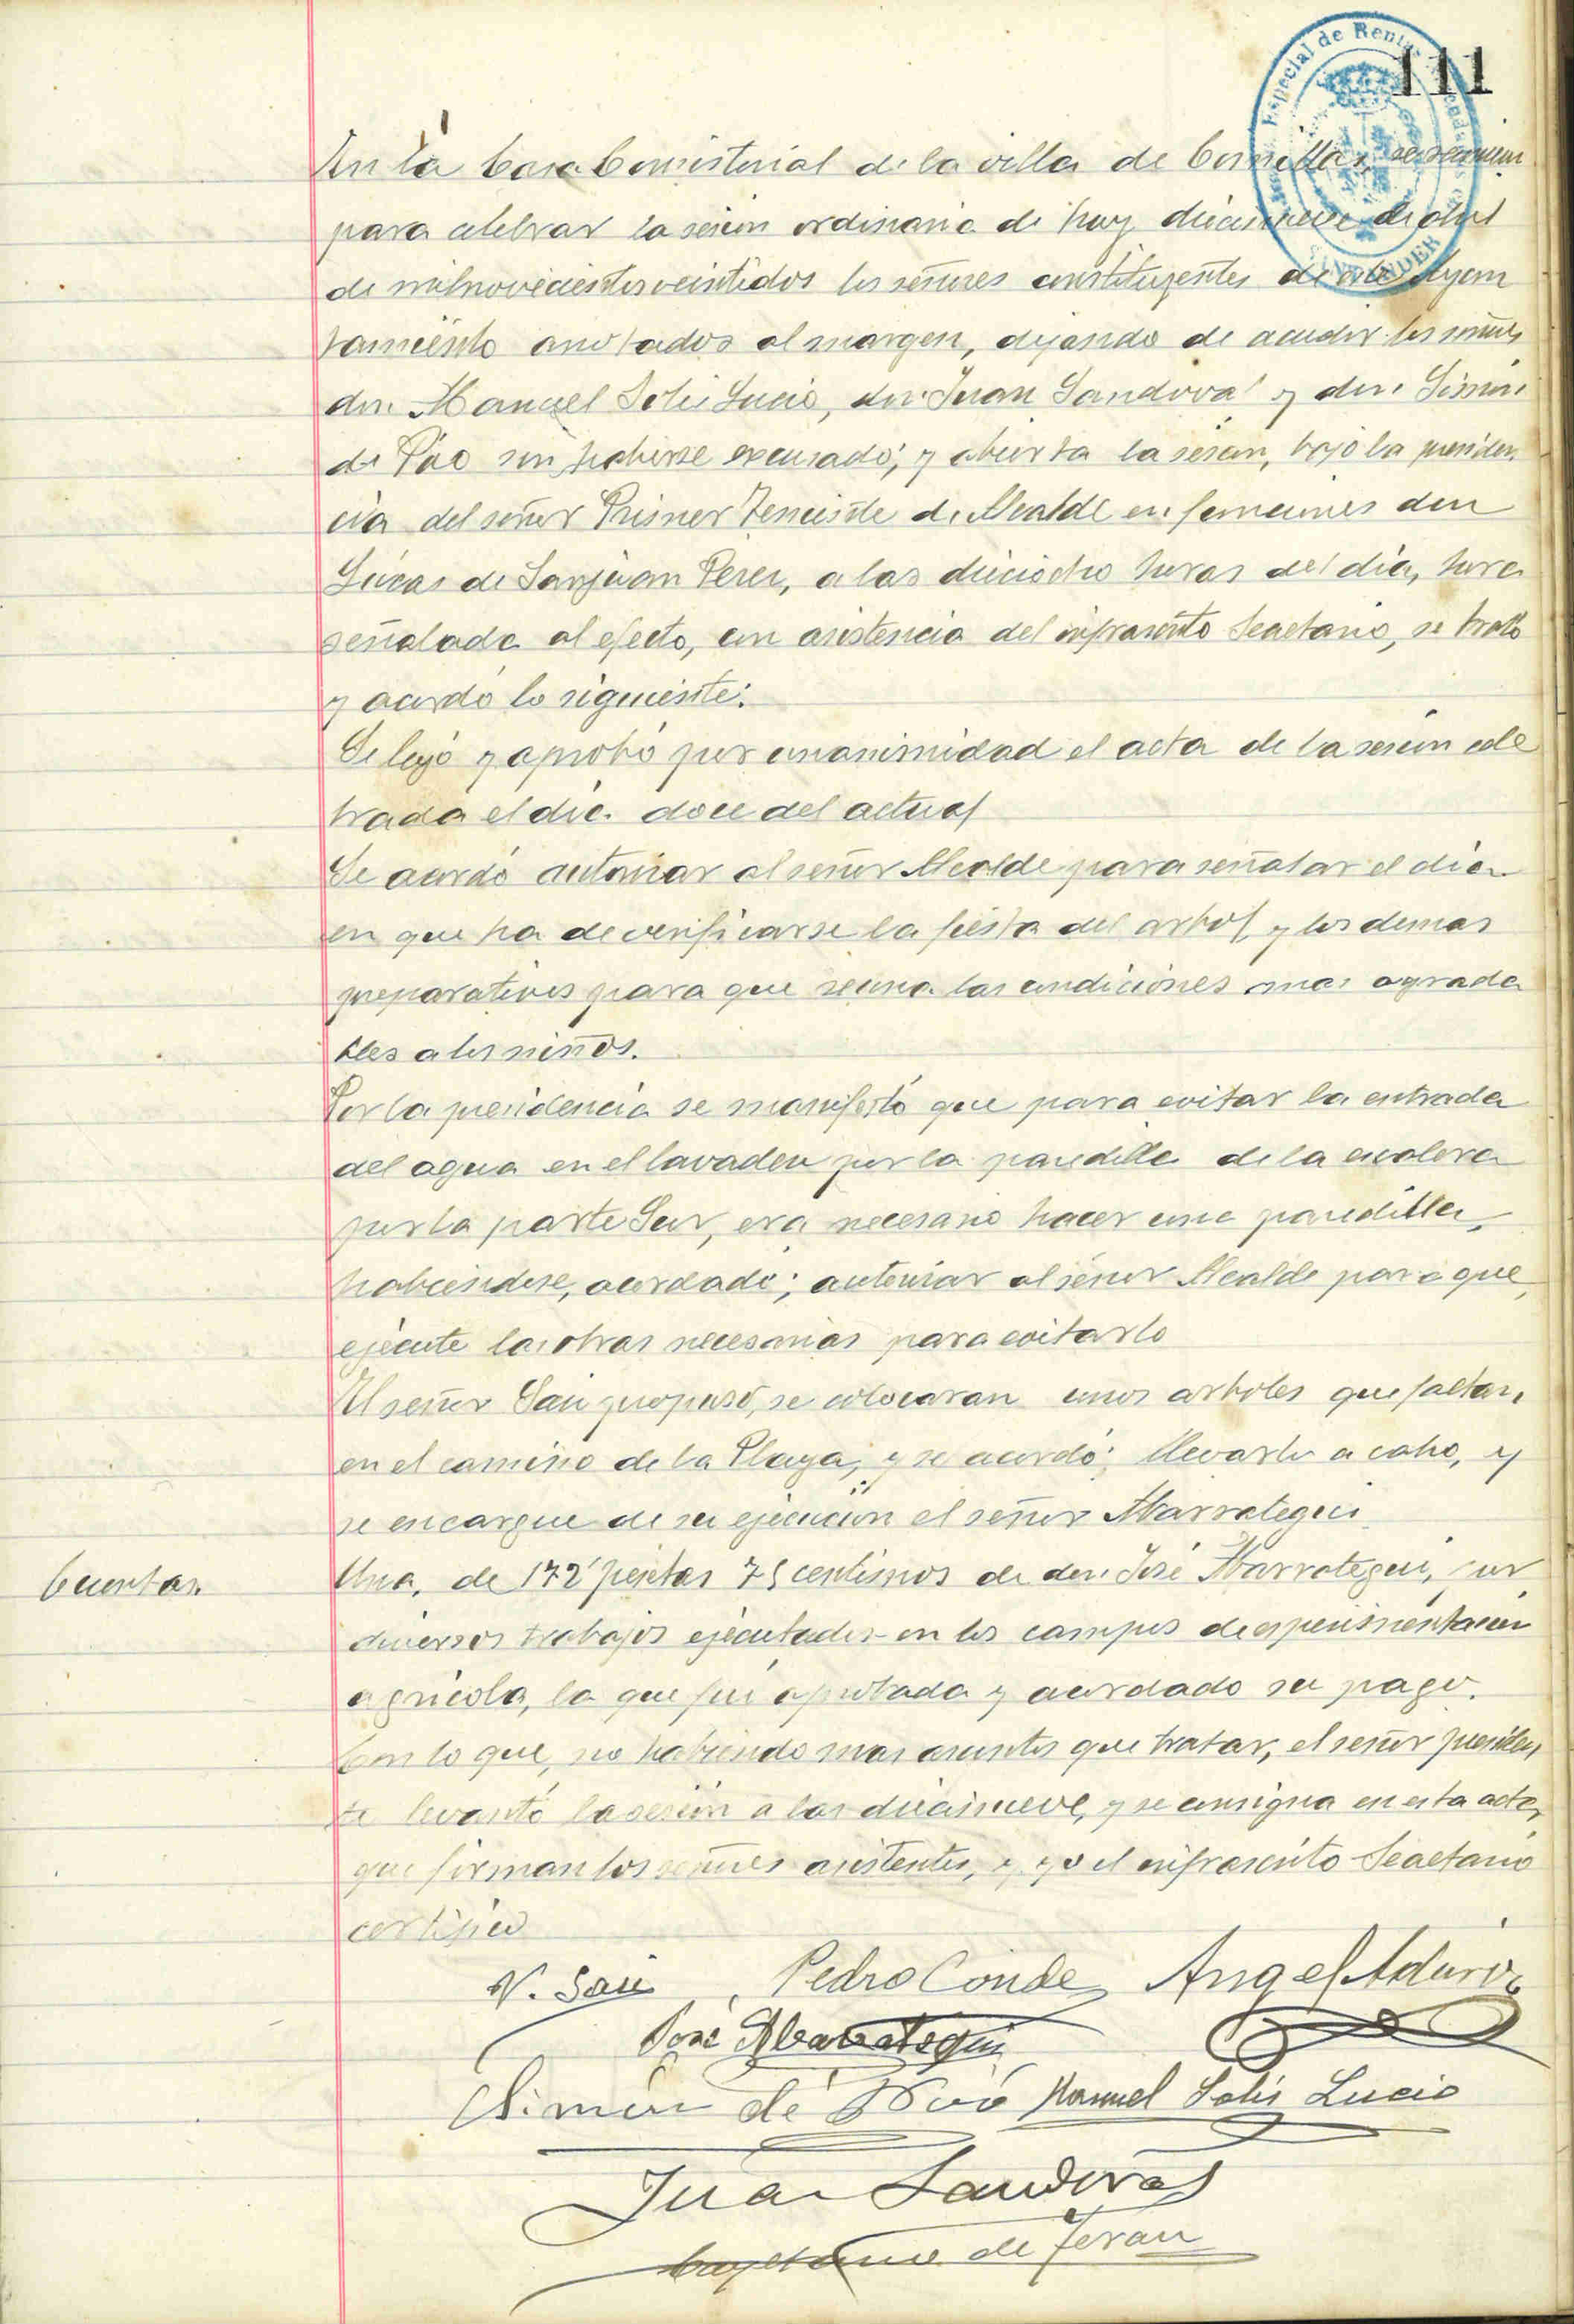 111
Especial de Rentas
SANTANDER
En la Casa Consistorial de la villa de Comillas, se reunieron
para celebrar la sesión ordinaria de hoy diecinueve de abril
de mil novecientos veintidos los señores constituyentes de este Ayun
tamiento anotados al margen, dejando de acudir los señores
don Manuel Solis Lucio, don Juan Sandoval y don Simón
de Póo sin haberse excusado; y abierta la sesión, bajo la presiden
cia del señor Primer Teniente de Alcalde en funciones don
Lúcas de Sanjuan Perez, a las dieciocho horas del dia, hora
señalada al efecto, con asistencia del infrascrito Secretario, se trató
y acordó lo siguiente:
Se leyó y aprobó por unanimidad el acta de la sesión cele
brada el dia doce del actual
Se acordó autorizar al señor Alcalde para señalar el dia
en que ha de verificarse la fiesta del arbol y los demas
preparativos para que reuna las condiciones mas agrada
bles a los niños.
Por la presidencia se manifestó que para evitar la entrada
del agua en el lavadero por la paredilla de la escalera
por la parte Sur, era necesario hacer una paredilla,
habiendose, acordado; autorizar al señor Alcalde para que,
ejecute las obras necesarias para evitarlo
El señor Saiz propuso, se colocaran unos arboles que faltan,
en el camino de la Playa, y se acordó; llevarlo a cabo, y
se encargue de su ejecución el señor Abarrategui
Cuentas.
Una, de 172 pesetas 75 centimos de don José Abarrategui, por
diversos trabajos ejecutados en los campos de esperimentación
agricola, la que fué aprobada y acordado su pago.
Con lo que, no habiendo mas asuntos que tratar, el señor presiden
te levantó la sesión a las diecinueve, y se consigna en esta acta,
que firman los señores asistentes, y yo el infrascrito Secretario
certifico
V. Saiz Pedro Conde Angel Aduriz
José Abarrategui
Simón de Póo Manuel Solis Lucio
Juan Sandoval
Cayetano de Teran